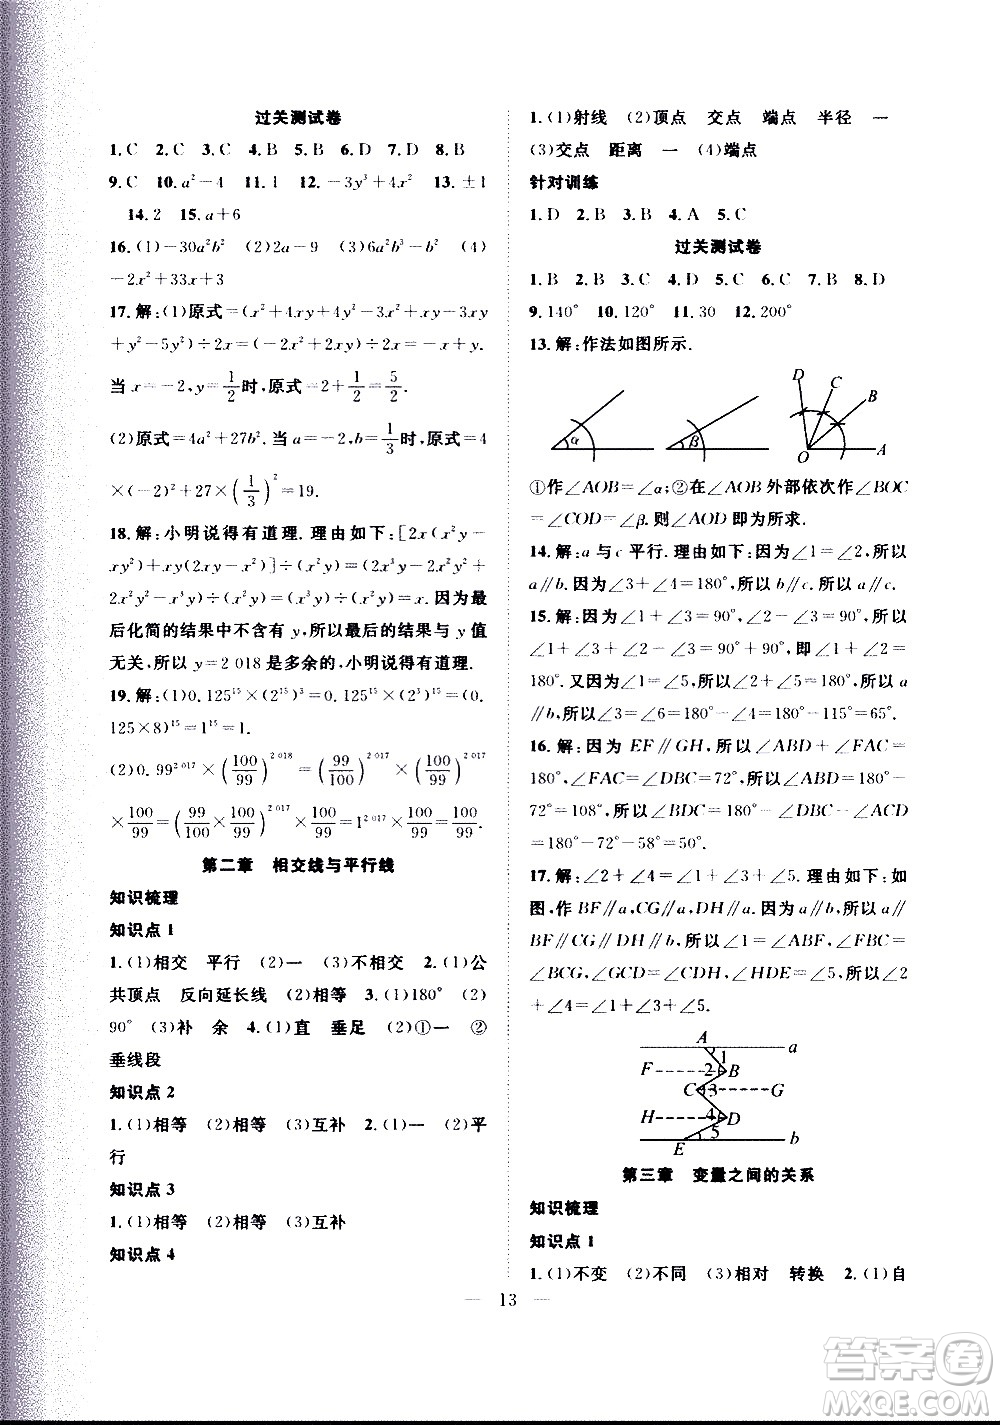 过关测试卷
1.C 2.C 3.C 4.B 5.B 6.B 7.D 8.B
9.C 10.a²-4 11.1 12.-3x³+2x² 13.±1
14.2 15.a+6
16.(1)-30a²b² (2)2a-9 (3)6a²b³-b² (4)
-2x²+33x+9
17.解:(1)原式=(x²+4xy+4y²-3x²-3xy
+y²-5y²)÷2x=(-2x²+xy)÷2x=-x+1/2y.
当x=-2,y=1/2时,原式=2+1/4...
(2)原式=4a²+27b².当a=-2,b=1/3时,原式=4
×(-2)²+27×(1/3)²=19.
18.解:小明说得有道理.理由如下:[2x(x²y-
xy²)+xy(2xy-x²)]÷(x²y)=(2x³y-
2x²y²+2x²y²-x³y)÷(x²y)=x.因为最
后化简的结果中不含有y,所以最后的结果与y值
无关,所以y=2 018是多余的,小明说得有道理.
19.解:(1)0.125¹⁵×(2¹⁵)³=0.125¹⁵×(2³)¹⁵=(0.
125×8)¹⁵=1¹⁵=1.
(2)0.99²⁰¹⁷×(100/99)²⁰¹⁸=(99/100)²⁰¹⁷×(100/99)²⁰¹⁷
×100/99=(99/100×100/99)²⁰¹⁷×100/99=1²⁰¹⁷×100/99=100/99.
第二章 相交线与平行线
知识梳理
知识点1
1.(1)相交 平行 (2)一 (3)不相交 2.(1)公
共顶点 反向延长线 (2)相等 3.(1)180° (2)
90° (3)补 余 4.(1)直 垂足 (2)①一 ②
垂线段
知识点2
1.(1)相等 (2)相等 (3)互补 2.(1)一 (2)平
行
知识点3
1.(1)相等 (2)相等 (3)互补
知识点4
1.(1)射线 (2)顶点 交点 端点 半径 一
(3)交点 距离 一 (4)端点
针对训练
1.D 2.B 3.B 4.A 5.C
过关测试卷
1.B 2.B 3.C 4.C 5.D 6.C 7.B 8.D
9.140° 10.120° 11.30 12.200°
13.解:作法如图所示.
α β D C B O A
①作∠AOB=∠α;②在∠AOB外部依次作∠BOC
=∠COD=∠β.则∠AOD即为所求.
14.解:a与c平行.理由如下:因为∠1=∠2,所以
a∥b.因为∠3+∠4=180°,所以b∥c,所以a∥c.
15.解:因为∠1+∠2=180°,∠2-∠3=0°,所以
∠1+∠3=180°.因为∠4=∠1,所以∠4+∠3=
180°.因为∠5=∠3,所以∠4+∠5=180°.所以a
∥b,所以∠3+∠6=180°-∠2=180°-115°=65°.
16.解:因为EF∥GH,所以∠ABD+∠FAC=
180°,所以∠DBC=∠ABD=180°-∠FAC=180°-
72°=108°,所以∠BDC=180°-∠DBC-∠ACD
=180°-72°-58°=50°.
17.解:∠2+∠4=∠1+∠3+∠5.理由如下:如
图,作BF∥a,CG∥a,DH∥a.因为a∥b,所以a∥
BF∥CG∥DH∥b,所以∠1=∠ABF,∠FBC=
∠BCG,∠GCD=∠CDH,∠HDE=∠5,所以∠2
+∠4=∠1+∠3+∠5.
A 1 a
F 2 B
C 3 G
H 4 D
E 5 b
第三章 变量之间的关系
知识梳理
知识点1
1.(1)不变 (2)不同 (3)相对 转换 2.(1)自
13
答案圈
MXQE.COM